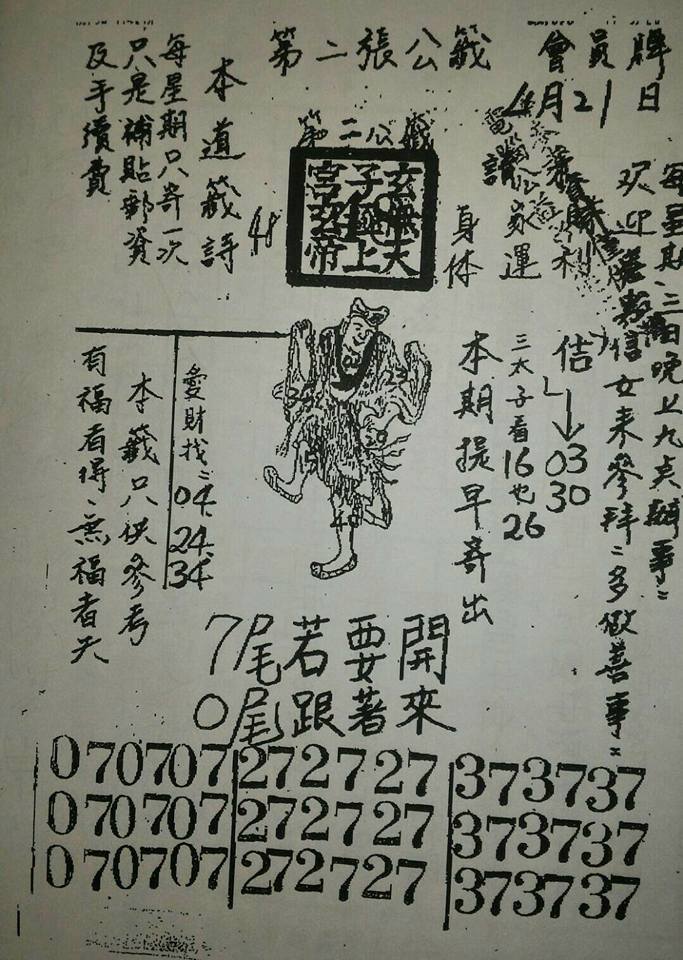 第二張公籤
會員牌
4月21日
每星期三日晚上九点辦事:
信女来參拜:多做善事:
家運
身体
佶
03
30
三太子看16也26
本期提早寄出
第二公籤
玄天上帝
48
本道籤詩
每星期只寄一次
只是補貼郵資
及手續費
愛財找:
04.
24.
34.
本籤只供參考
有福者得:無福者失
7尾若要開
0尾跟著來
070707 272727 373737
070707 272727 373737
070707 272727 373737